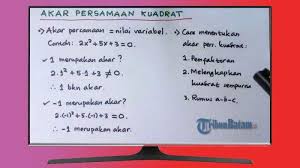 AKAR PERSAMAAN KUADRAT
✓ Akar persamaan = nilai variabel.
Contoh: 2x² + 5x + 3 = 0.
✓ 1 merupakan akar?
2.1² + 5.1 + 3 ≠ 0.
∴ 1 bkn akar.
✓ -1 merupakan akar?
2.(-1)² + 5.(-1) + 3 = 0.
∴ -1 merupakan akar.
✓ Cara menentukan
akar pers. kuadrat:
1. Pemfaktoran
2. Melengkapkan
kuadrat sempurna
3. Rumus a-b-c.
TribunBatam.id